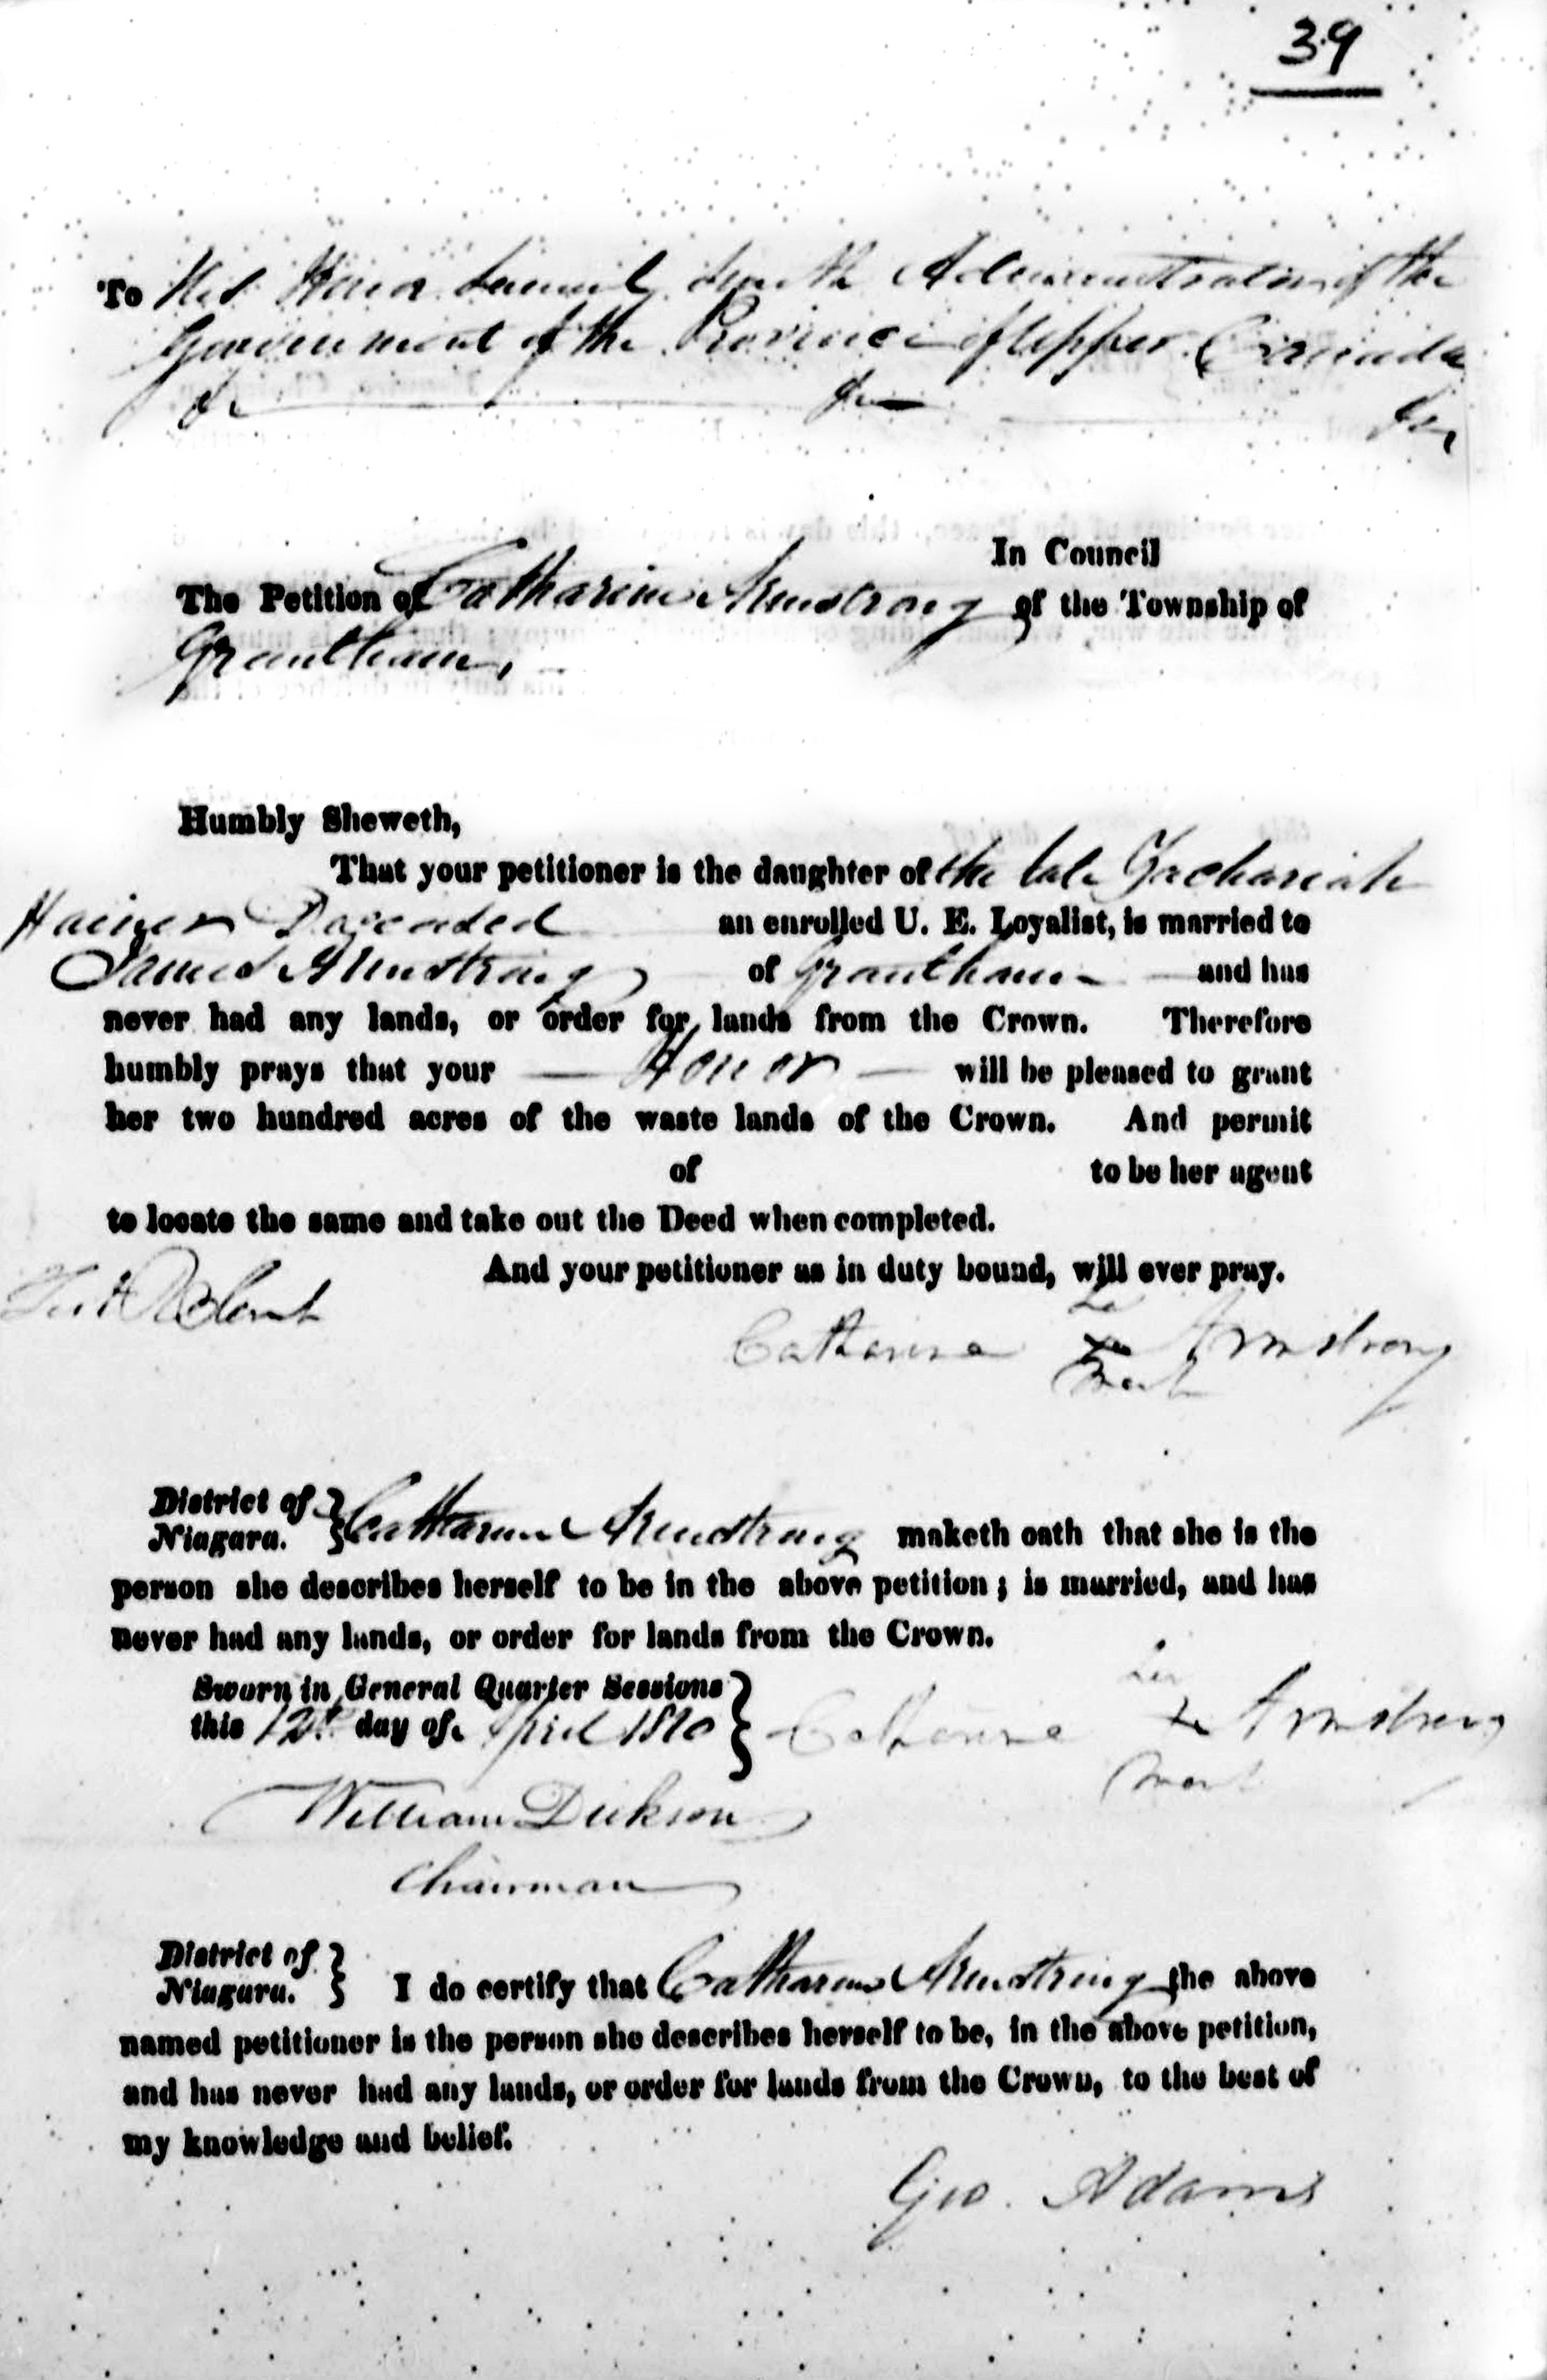 39
To His Honor Samuel Smith Administrator of the
Government of the Province of Upper Canada
&c &c &c,
In Council
The Petition of Catharine Armstrong of the Township of
Grantham,
Humbly Sheweth,
That your petitioner is the daughter of the late Zachariah
Hainer Deceased an enrolled U. E. Loyalist, is married to
James Armstrong of Grantham and has
never had any lands, or order for lands from the Crown. Therefore
humbly prays that your Honor will be pleased to grant
her two hundred acres of the waste lands of the Crown. And permit
of to be her agent
to locate the same and take out the Deed when completed.
And your petitioner as in duty bound, will ever pray.
her
Catharine x Armstrong
mark
District of
Niagara. } Catharine Armstrong maketh oath that she is the
person she describes herself to be in the above petition; is married, and has
never had any lands, or order for lands from the Crown.
Sworn in General Quarter Sessions
this 12th day of April 1820 }
her
Catherine x Armstrong
mark
William Dickson
Chairman
District of
Niagara. } I do certify that Catharine Armstrong the above
named petitioner is the person she describes herself to be, in the above petition,
and has never had any lands, or order for lands from the Crown, to the best of
my knowledge and belief.
Geo. Adams